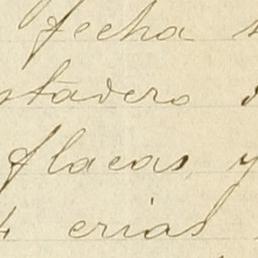 fecha
stadero
flacas, y
4 crias